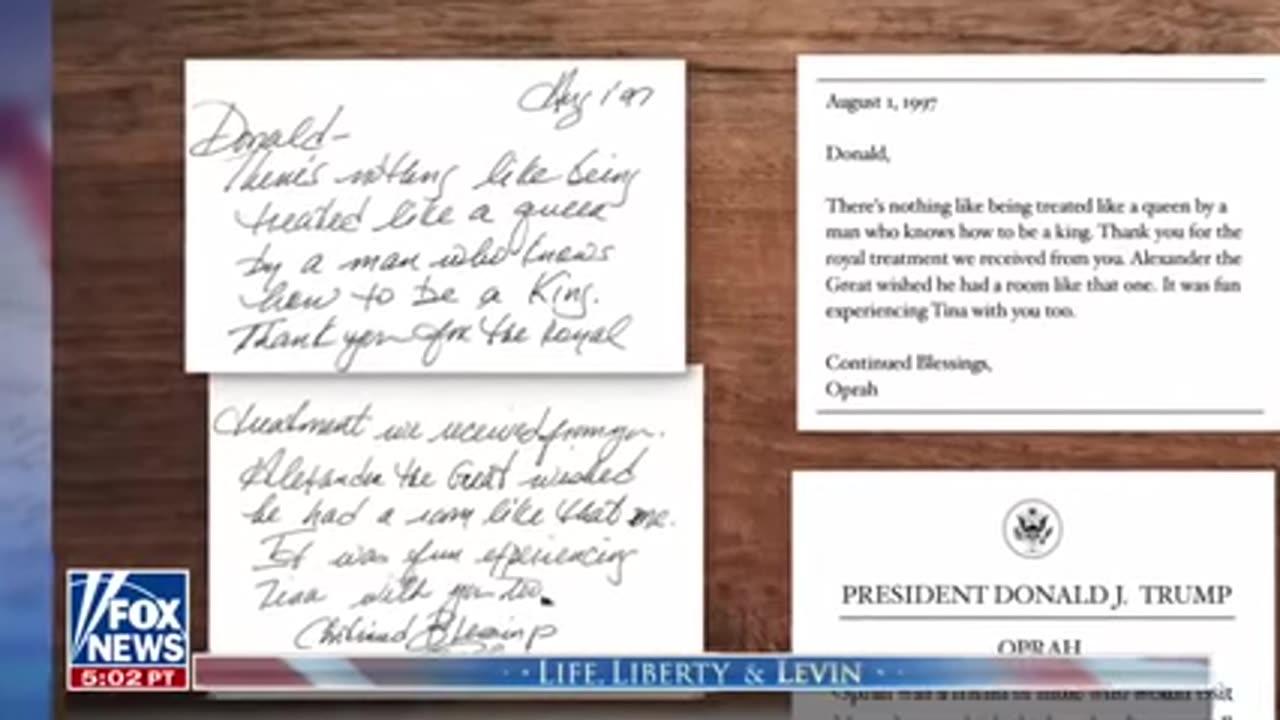 Aug 1 97
Donald-
There's nothing like being
treated like a queen
by a man who knows
how to be a King.
Thank you for the royal
treatment we received from you.
Alexander the Great wished
he had a room like that one.
It was fun experiencing
Tina with you too.
Continued Blessings
August 1, 1997
Donald,
There's nothing like being treated like a queen by a
man who knows how to be a king. Thank you for the
royal treatment we received from you. Alexander the
Great wished he had a room like that one. It was fun
experiencing Tina with you too.
Continued Blessings,
Oprah
PRESIDENT DONALD J. TRUMP
OPRAH
FOX
NEWS
5:02 PT
LIFE, LIBERTY & LEVIN